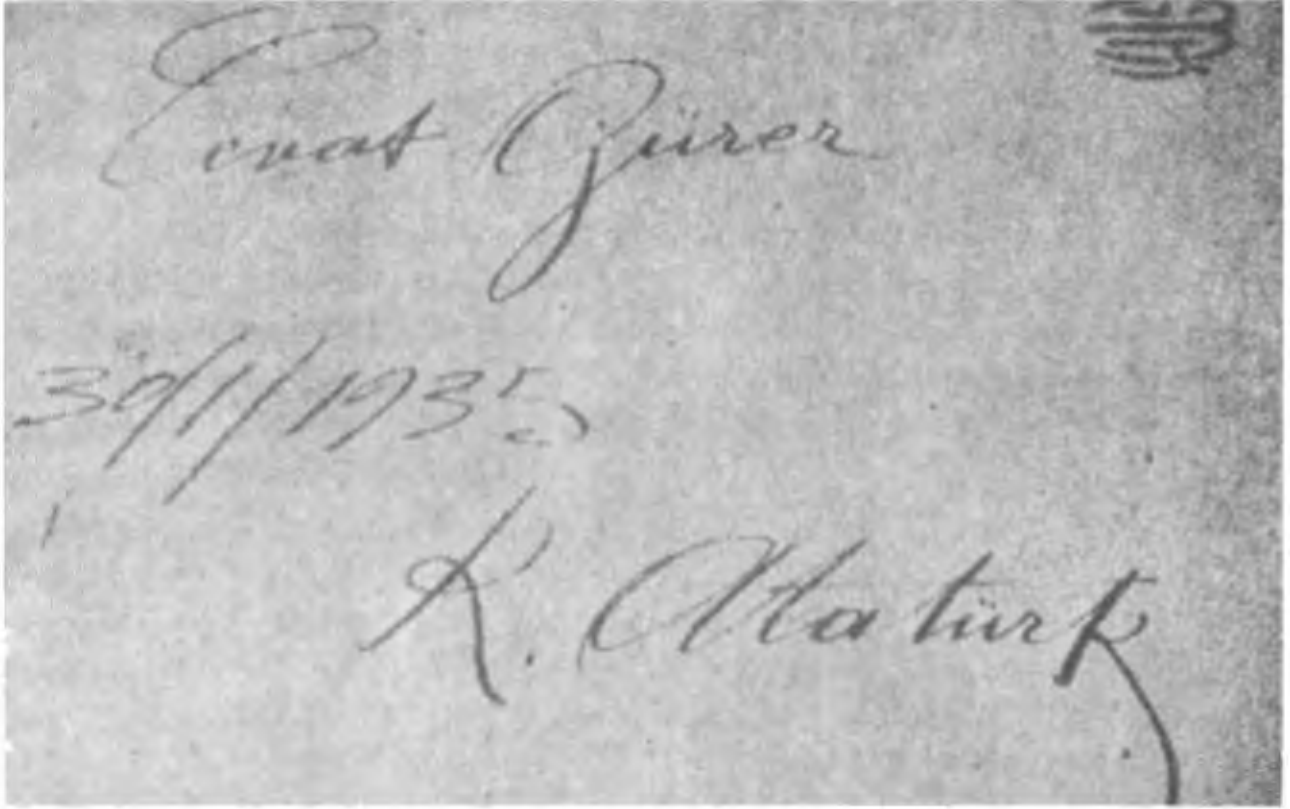 Cevat Gürer
30/1/1935
K. Atatürk